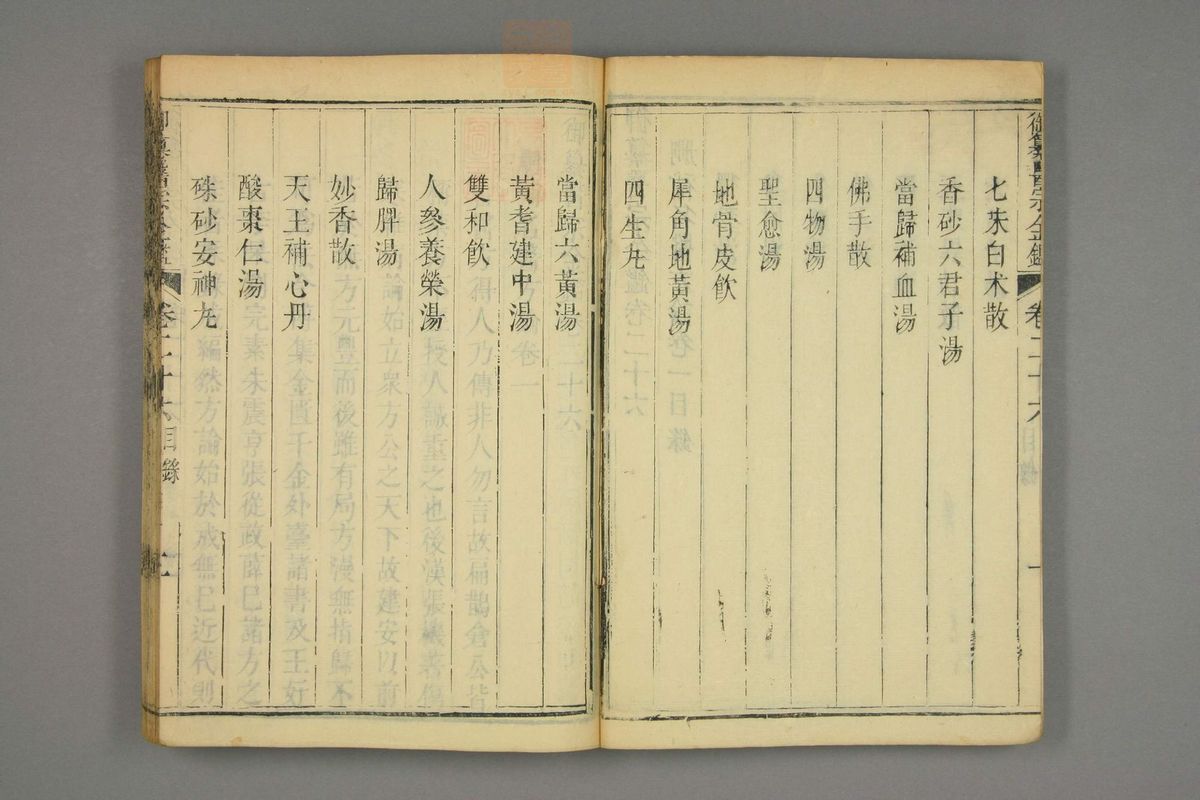 御纂醫宗金鑑 卷二十六目錄 一
七珠白朮散
香砂六君子湯
當歸補血湯
佛手散
四物湯
聖愈湯
地骨皮飲
犀角地黃湯
四生丸
當歸六黃湯
黃耆建中湯
雙和飲
人參養榮湯
歸脾湯
妙香散
天王補心丹
酸棗仁湯
硃砂安神丸
御纂醫宗金鑑 卷二十六目錄